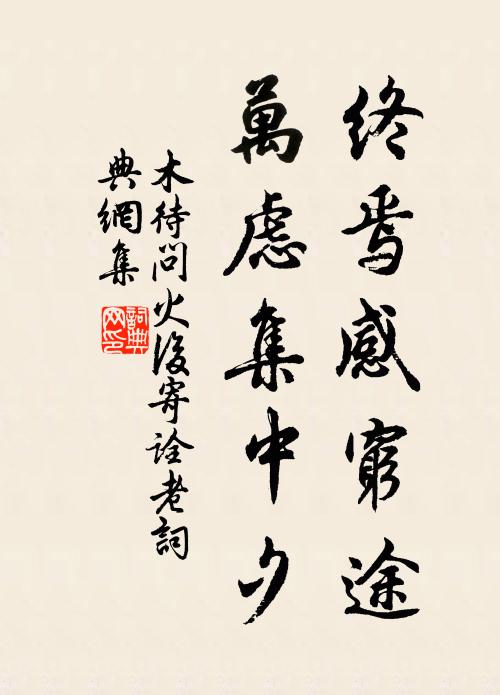 終焉感窮途
萬慮集中夕
木待問火後寄詮老詞
典網集
詞典網印